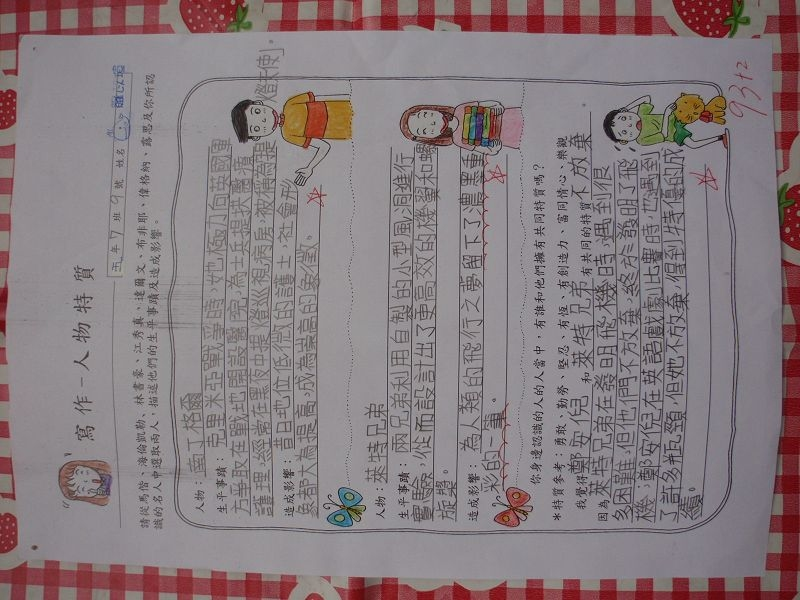 寫作－人物特質
五年7班9號 姓名
請從馬偕、海倫凱勒、林書豪、江秀真、達爾文、布非耶、偉格納、露思及你所認
識的名人中選取兩人，描述他們的生平事蹟及造成影響。
人物：南丁格爾
生平事蹟：克里米亞戰爭時，她極力向英國軍
方爭取在戰地開設醫院，為士兵提供醫療
護理，經常在黑夜中提燈巡視病房，被稱為「提
燈天使」。
造成影響：昔日地位低微的護士，社會形
象都大為提高，成為崇高的象徵。
人物：萊特兄弟
生平事蹟：兩兄弟利用自製的小型風洞進行
實驗，從而設計出了更高效的機翼和螺
旋槳。
造成影響：為人類的飛行之夢留下了濃墨重
彩的一筆。
你身邊認識的人的人當中，有誰和他們擁有共同特質嗎？
＊特質參考：勇敢、勤勞、堅忍、有恆、有創造力、富同情心、樂觀
我覺得鄭安倪和萊特兄弟有共同的特質不放棄
因為萊特兄弟在發明飛機時遇到很
多困難，但他們不放棄，終於發明了飛
機，鄭安倪在英語戲劇比賽時，也遇到
了許多瓶頸，但她不放棄，得到特優的成
績。
93+2